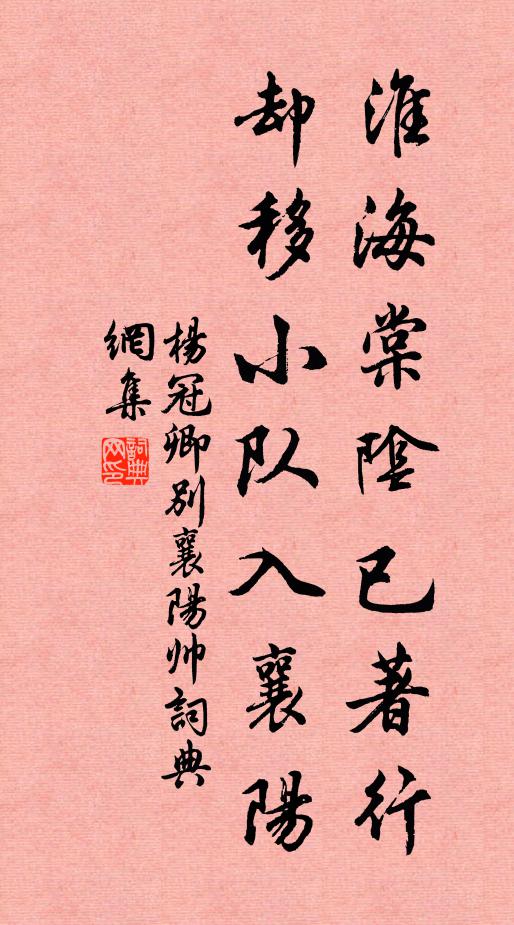 淮海棠陰已著行
却移小队入襄陽
楊冠卿别襄陽帅詞典
網集
詞典网印